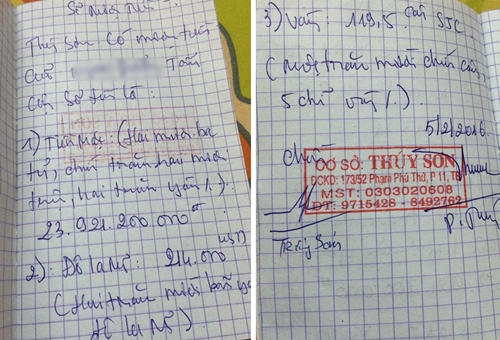 Số mượn tiền
Thúy Sơn Có mượn tiền
của Tấn
Cậu Số tiền là:
1) Tiền Mặt: (Hai mươi ba
tỷ, chín trăm hai mươi
triệu, hai trăm ngàn /.)
23.921.200.000đ
2): Đô la Mỹ: 214.000 USD
(Hai trăm mười bốn ngàn
đô la Mỹ)
3) Vàng: 119,5 Cây SJC
(Một trăm mười chín cây,
5 chỉ vàng /.)
5/2/2016
CƠ SỞ: THÚY SƠN
ĐCKD: 173/52 Phạm Phú Thứ, P 11, TB
MST: 0303020608
ĐT: 9715428 - 8492762